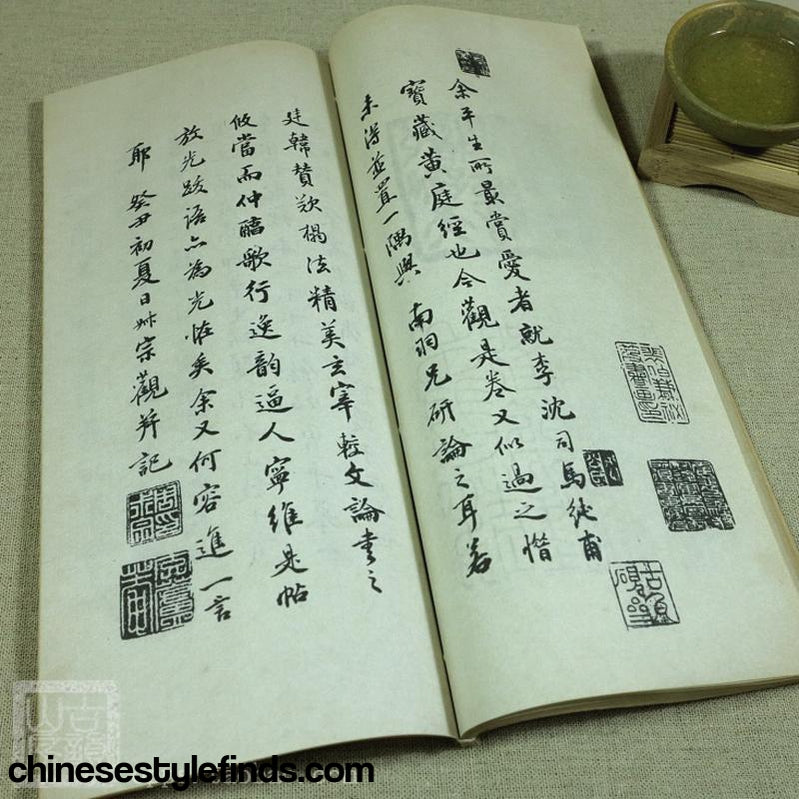 余平生所最賞愛者就李沈司馬純甫
寶藏黄庭經也今觀是卷又似過之惜
未得並置一隅與 南羽兄研論之耳若
廷韓贊歎搨法精美玄宰較文論書之
攸當而仲醽歌行逸韵逼人寧維是帖
放光跋語亦為光怪矣余又何容進一言
耶 癸丑初夏日艸宗觀并記
chinesestylefinds.com